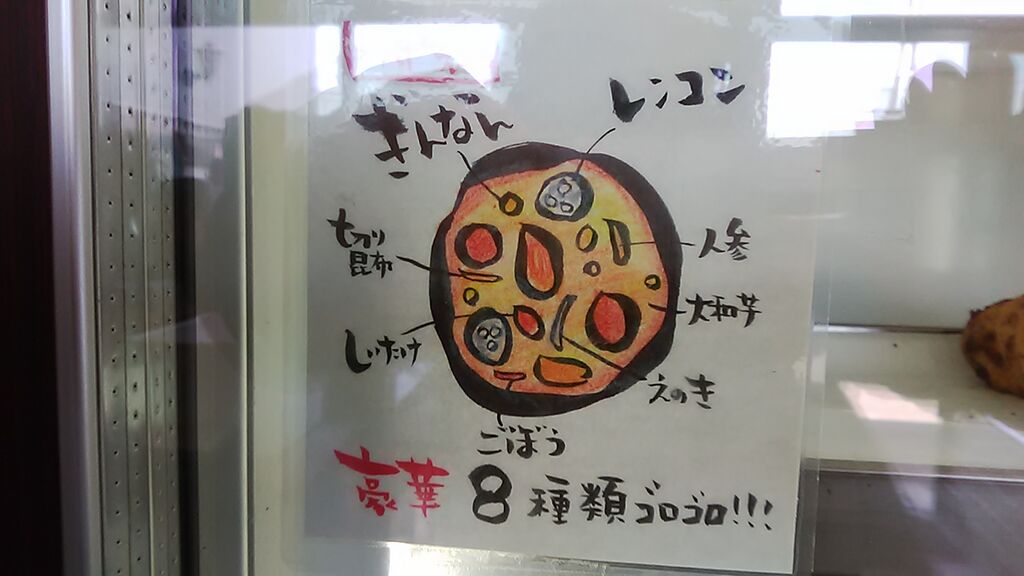 ぎんなん
レンコン
切り
昆布
人参
大和芋
しいたけ
えのき
ごぼう
豪華 8種類ゴロゴロ!!!